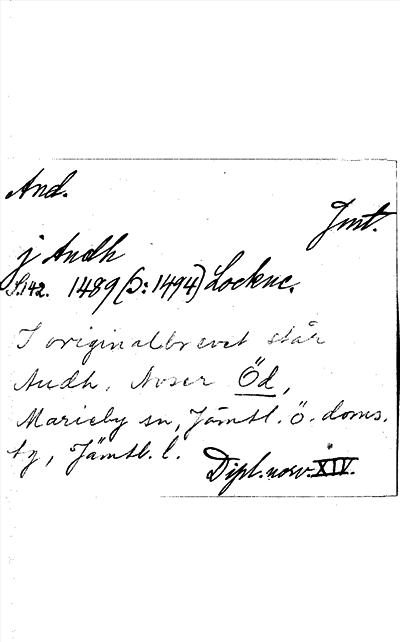 And.
Jmt.
j Audh
S. 142. 1489 (ɔ: 1494) Lockne.
I originalbrevet står
Audh. Avser Öd,
Marieby sn, Jämtl. ö. doms.
tg, Jämtl. l.
Dipl. norv. XIV.